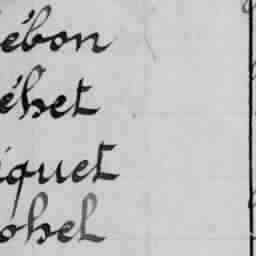 ébon
éhet
iquet
ohel